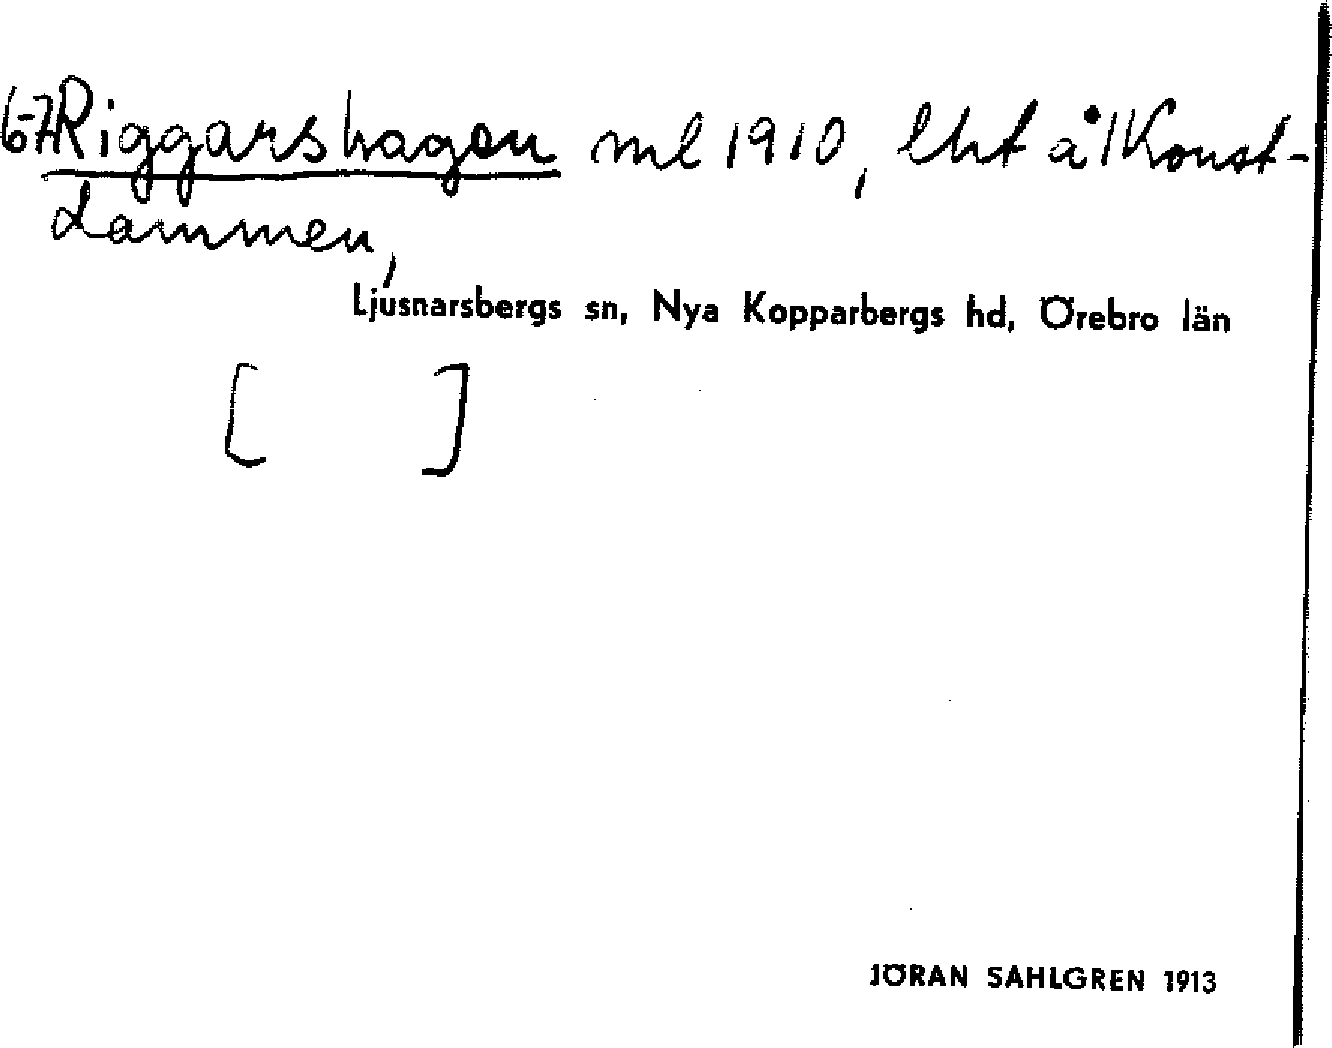 67 Riggarshagen ml 1910, lht å Konst-
dammen,
Ljusnarsbergs sn, Nya Kopparbergs hd, Örebro län
[ ]
JÖRAN SAHLGREN 1913